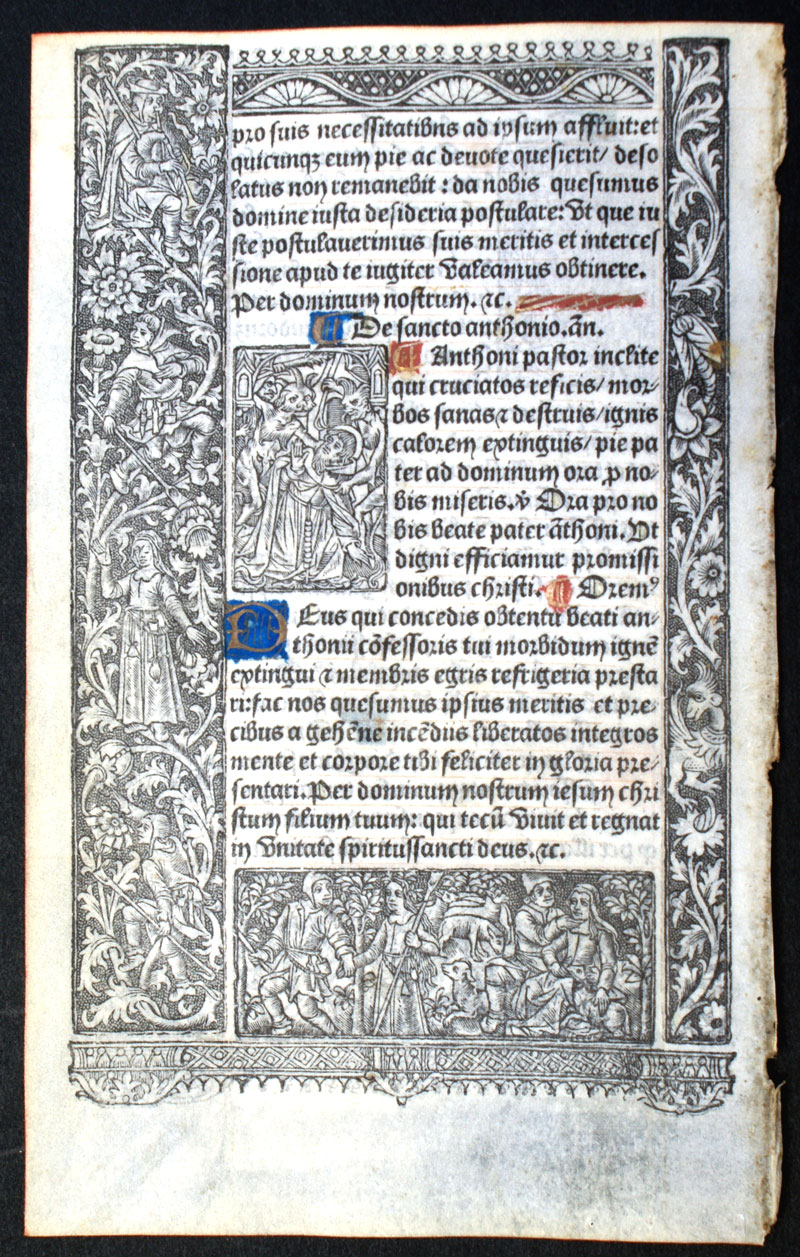 pro suis necessitatibus ad ipsum affluit: et
quicunqꝫ eum pie ac deuote quesierit/ deso
latus non remanebit: da nobis quesumus
domine iusta desideria postulare: Vt que iu
ste postulauerimus suis meritis et interces
sione apud te iugiter valeamus obtinere.
Per dominum nostrum. ⁊c.
De sancto anthonio. añ.
A Anthoni pastor inclite
qui cruciatos reficis/ mor-
bos sanas ⁊ destruis/ ignis
calorem extinguis/ pie pa
ter ad dominum ora ꝓ no-
bis miseris. ℣ Ora pro no
bis beate pater ãthoni. Vt
digni efficiamur promissi
onibus christi. Oremꝰ
DEus qui concedis obtentu beati an-
thonii cõfessoris tui morbidum ignẽ
extingui ⁊ membris egris refrigeria presta
ri: fac nos quesumus ipsius meritis et pre-
cibus a gehẽne incẽdiis liberatos integros
mente et corpore tibi feliciter in gloria pre-
sentari. Per dominum nostrum iesum chri
stum filium tuum: qui tecũ viuit et regnat
in vnitate spiritussancti deus. ⁊c.